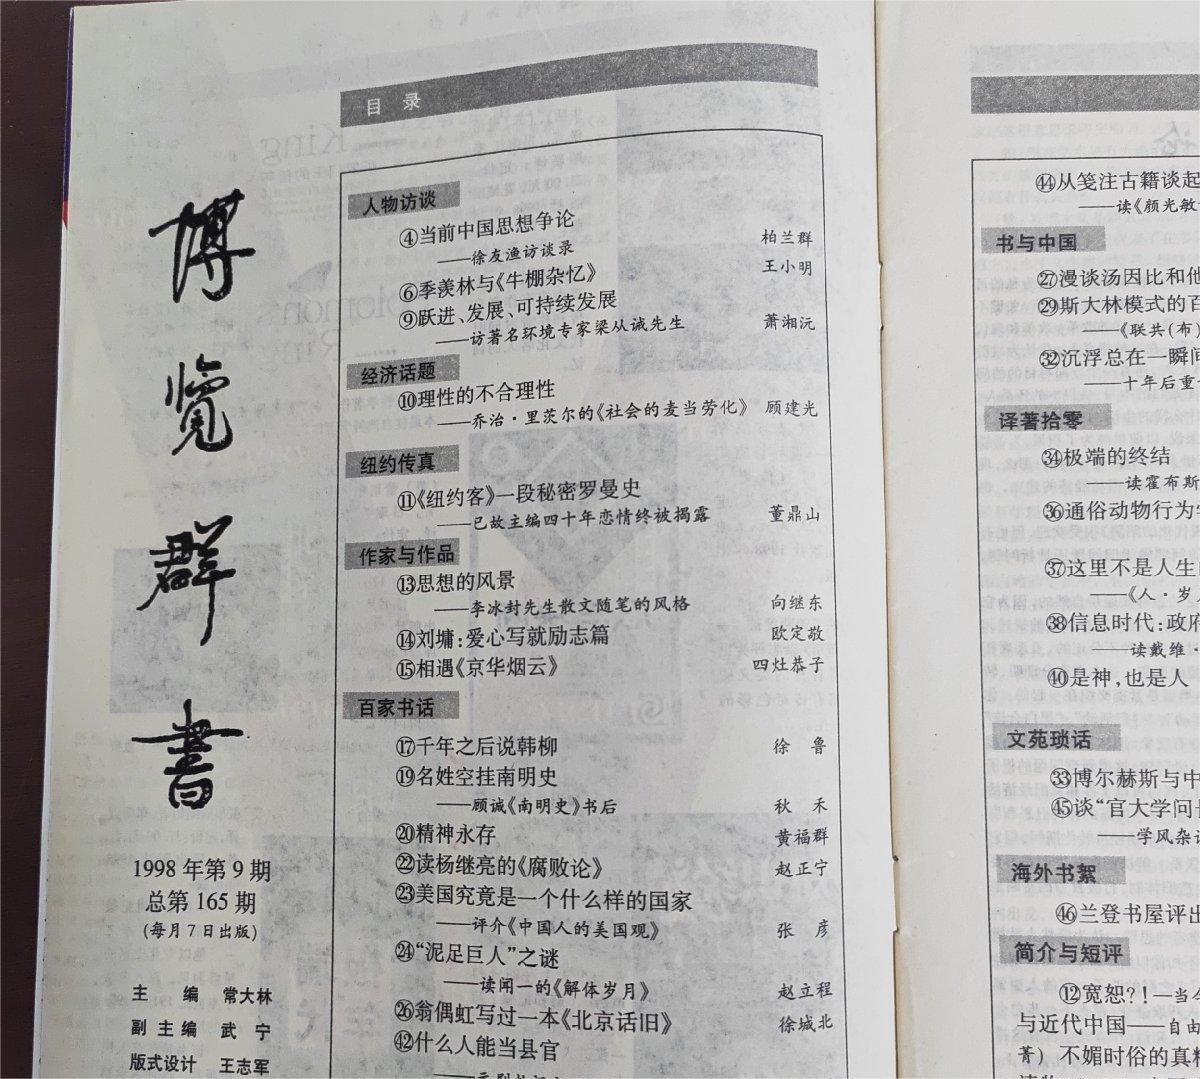 博览群書
1998年第9期
总第165期
(每月7日出版)
主 编 常大林
副 主 编 武 宁
版式设计 王志军
目 录
人物访谈
④当前中国思想争论
——徐友渔访谈录 柏兰群
⑥季羡林与《牛棚杂忆》 王小明
⑨跃进、发展、可持续发展
——访著名环境专家梁从诫先生 萧湘沅
经济话题
⑩理性的不合理性
——乔治·里茨尔的《社会的麦当劳化》 顾建光
纽约传真
⑪《纽约客》一段秘密罗曼史
——已故主编四十年恋情终被揭露 董鼎山
作家与作品
⑬思想的风景
——李冰封先生散文随笔的风格 向继东
⑭刘墉:爱心写就励志篇 欧定敬
⑮相遇《京华烟云》 四灶恭子
百家书话
⑰千年之后说韩柳 徐 鲁
⑲名姓空挂南明史
——顾诚《南明史》书后 秋 禾
⑳精神永存 黄福群
㉒读杨继亮的《腐败论》 赵正宁
㉓美国究竟是一个什么样的国家
——评介《中国人的美国观》 张 彦
㉔“泥足巨人”之谜
——读闻一的《解体岁月》 赵立程
㉖翁偶虹写过一本《北京话旧》 徐城北
㊷什么人能当县官
㊹从笺注古籍谈起
——读《颜光敏
书与中国
㉗漫谈汤因比和他
㉙斯大林模式的百
——《联共(布)
㉜沉浮总在一瞬间
——十年后重
译著拾零
㉞极端的终结
——读霍布斯
㊱通俗动物行为学
㊲这里不是人生
——《人·岁月
㊳信息时代:政府
——读戴维·
㊵是神,也是人
文苑琐话
㉝博尔赫斯与中
㊺谈“官大学问长
——学风杂谈
海外书絮
㊻兰登书屋评出
简介与短评
⑫宽恕?!—当今
与近代中国——自由
菁) 不媚时俗的真精